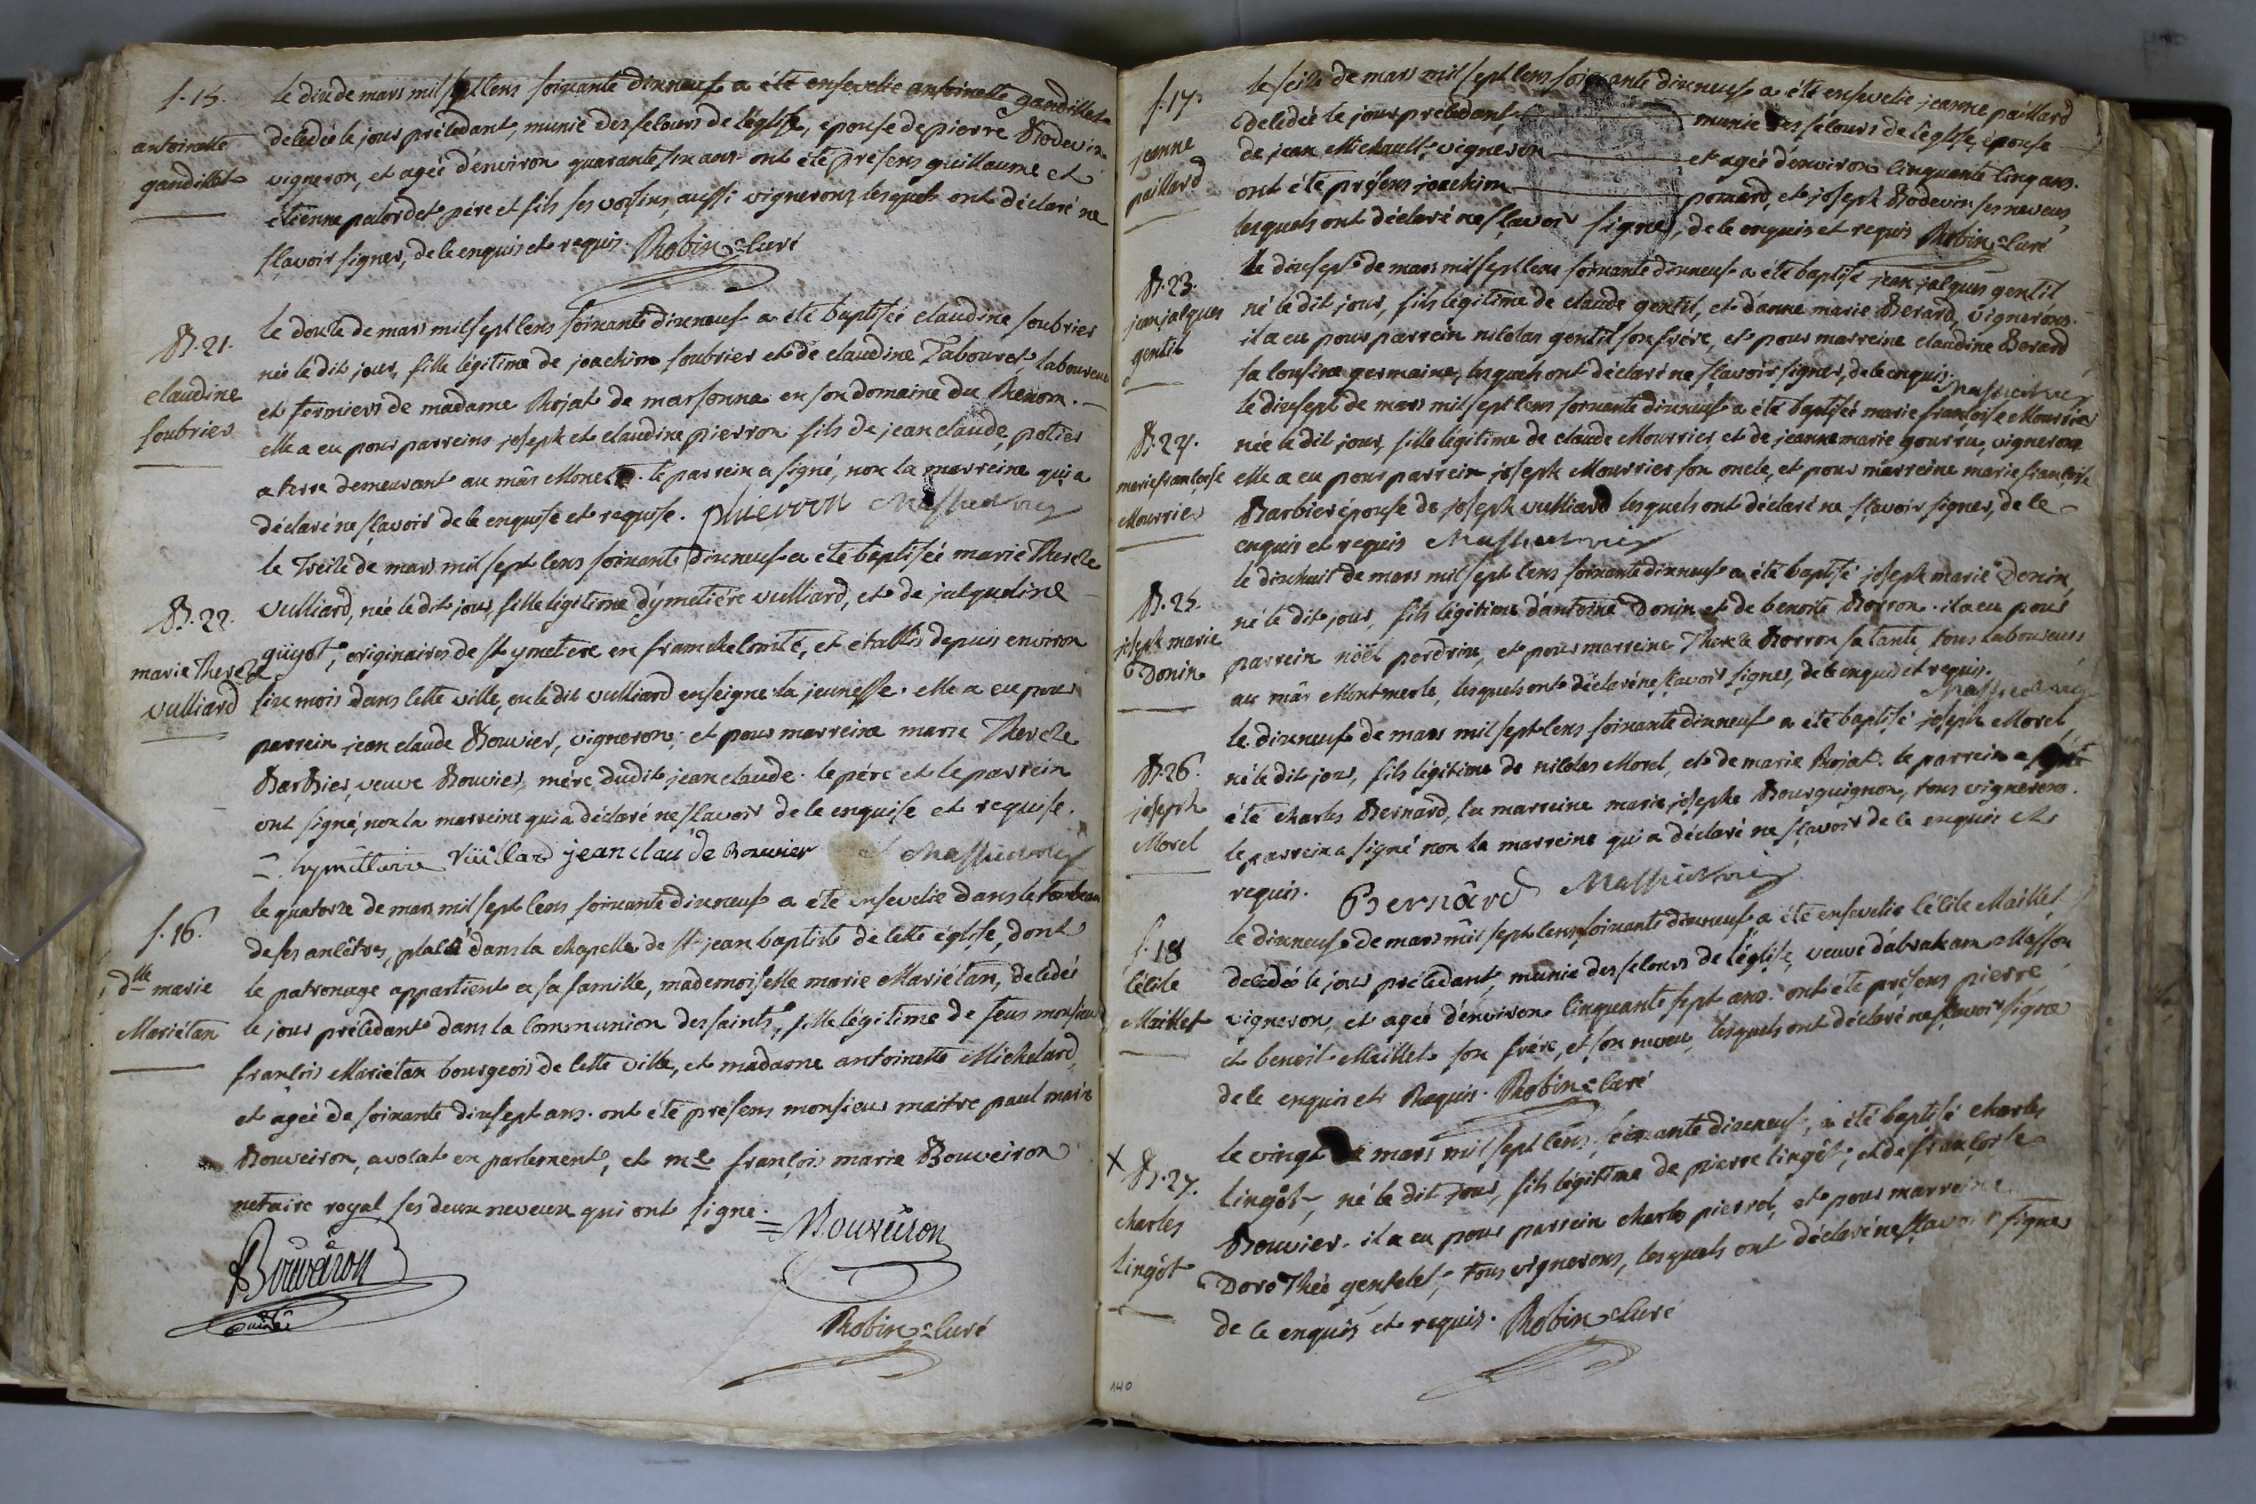 S. 15.
antoinette
gaudillet
le dix de mars mil sept cens soixante dixneuf a été ensevelie antoinette gaudillet
décédée le jour précédant, munie des secours de l'église, epouse de pierre Bodevin
vigneron, et agée d'environ quarante six ans. ont été présens guillaume et
étienne palordet pére et fils ses voisins, aussi vignerons lesquels ont déclaré ne
sçavoir signer, de ce enquis et requis. Robin = Curé
B. 21.
claudine
soubrier
le douze de mars mil sept cens soixante dixneuf a été baptisée claudine soubrier
née le dit jour, fille légitime de joachim soubrier et de claudine Tabouret, laboureurs
et fermiers de madame Rojat de marsonna en son domaine du Biénom.
elle a eu pour parreins joseph et claudine pierron fils de jean claude, potier
a terre demeurant au mâs Monet. le parrein a signé, non la marreine qui a
déclaré ne sçavoir de ce enquise et requise. phierron
B. 22.
marie Thereze
vulliard
le Treize de mars mil sept cens soixante dixneuf a été baptisée marie Thereze
vulliard, née le dit jour, fille légitime d'ymetiére vulliard, et de jacqueline
guyot, originaires de st ymetiere en franchecomté, et établis depuis environ
six mois dans cette ville, ou le dit vulliard enseigne la jeunesse. elle a eu pour
parrein jean claude Bouvier, vigneron, et pour marreine marie Thereze
Barbier, veuve Bouvier, mére dudit jean claude. le pére et le parrein
ont signé, non la marreine qui a déclaré ne sçavoir de ce enquise et requise.
Vuillard jean clau de Bouvier
S. 16.
dlle marie
Mariétan
le quatorze de mars mil sept cens soixante dixneuf a été ensevelie dans le tombeau
de ses ancêtres, placé dans la chapelle de st jean baptiste de cette église, dont
le patronage appartient a sa famille, mademoiselle marie Mariétan, décédée
le jour précédant dans la communion des saints, fille légitime de feus monsieur
françois Mariétan bourgeois de cette ville, et madame antoinette Michelard,
et agée de soixante dixsept ans. ont été présens monsieur maitre paul marie
Bouveiron, avocat en parlement, et me françois marie Bouveiron
notaire royal ses deux neveux qui ont signé.
= Bouveiron
Bouveiron
Robin = Curé
S. 17.
jeanne
paillard
le seize de mars mil sept cens soixante dixneuf a été ensevelie jeanne paillard
décédée le jour précédant, munie des sécours de l'église, épouse
de jean Michault, vigneron et agée d'environ cinquante cinq ans.
ont été présens joachim ponard, et joseph Bodevin ses neveux,
lesquels ont déclaré ne sçavoir signer, de ce enquis et requis Robin = Curé
B. 23.
jean jacques
gentil
le dixsept de mars mil sept cens soixante dixneuf a été baptisé jean jacques gentil
né le dit jour, fils légitime de claude gentil, et d'anne marie Berard, vignerons.
il a eu pour parrein nicolas gentil son frére, et pour marreine claudine Berard
sa cousine germaine, lesquels ont déclaré ne sçavoir signer, de ce enquis.
B. 24.
marie françoise
Mourrier
le dixsept de mars mil sept cens soixante dixneuf a été baptisée marie françoise Mourrier
née le dit jour, fille légitime de claude Mourrier, et de jeanne marie gourru, vignerons
elle a eu pour parrein joseph Mourrier son oncle, et pour marreine marie françoise
Barbier épouse de joseph vulliard lesquels ont déclaré ne sçavoir signer, de ce
enquis et requis
B. 25.
joseph marie
Donin
le dixhuit de mars mil sept cens soixante dixneuf a été baptisé joseph marie Donin,
né le dit jour, fils légitime d'antoine Donin et de benoite Borron. il a eu pour
parrein noël perdrix, et pour marreine Thereze Borron sa tante, tous laboureurs
au mâs Montmerle, lesquels ont déclaré ne sçavoir signer, de ce enquis et requis.
B. 26.
joseph
Morel
le dixneuf de mars mil sept cens soixante dixneuf a été baptisé joseph Morel,
né le dit jour, fils légitime de nicolas Morel, et de marie Rojat. le parrein a
été charles Bernard, la marreine marie josephe Bourguignon, tous vignerons.
le parrein a signé non la marreine qui a déclaré ne sçavoir de ce enquise et
requis. Bernârd
S. 18
Cécile
Maillet
le dixneuf de mars mil sept cens soixante dixneuf a été ensevelie Cécile Maillet
décédée le jour précédant, munie des secours de l'église, veuve d'abraham Masson
vigneron, et agée d'environ cinquante sept ans. ont été présens pierre
et benoit Maillet son frére, et son neveu, lesquels ont déclaré ne sçavoir signer
de ce enquis et Requis. Robin = Curé
X
B. 27.
charles
Lingôt
le vingt de mars mil sept cens soixante dixneuf, a été baptisé charles
Lingôt, né le dit jour, fils légitime de pierre lingôt, et de françoise
Bouvier. il a eu pour parrein charles pierrol, et pour marreine
Dorothée genselet, tous vignerons, lesquels ont déclaré ne sçavoir signer
de ce enquis et requis. Robin = Curé
140